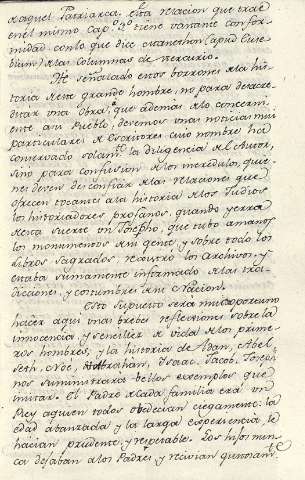 aquel Patriarca. esta relacion que trae
en el mismo cap.º 3º tiene bastante confor-
midad con lo que dice
las columnas de Mercurio.
He señalado estos borrones a la his-
toria de este grande hombre, no para desacre-
ditar una obra, que ademas de lo concerni-
ente a su Pueblo, devemos una noticia mui
particular de Escritores cuio nombre ha
conservado solam.te la diligencia del Autor,
sino para confusion de los incredulos, quie-
nes deven desconfiar de las relaciones que
ofrecen tocantes a la historia de los Judios
los historiadores profanos, quando yerra
de esta suerte un Josepho, que tubo a mano
los monumentos de su gente, y sobre todo los
libros sagrados recurrio los Archivos, y
estaba sumamente informado de las tra-
diciones, y costumbres de su Nacion.
Esto supuesto sera mui oportuno
hacer aqui unas brebes reflexiones sobre la
inocencia y sencillez de vida de los prime-
ros hombres, y la historia de Adan, Abel,
Seth, Noe, Abrahan, Isaac, Jacob, Joseph
nos suministrara bellos exemplos que
imitar. El Padre de cada familia era un
Rey a quien todos obedecian ciegamente: la
edad abanzada y la larga experiencia le
hacian prudente, y respetable. Los hijos nun-
ca dejaban a los Padres, y vivian